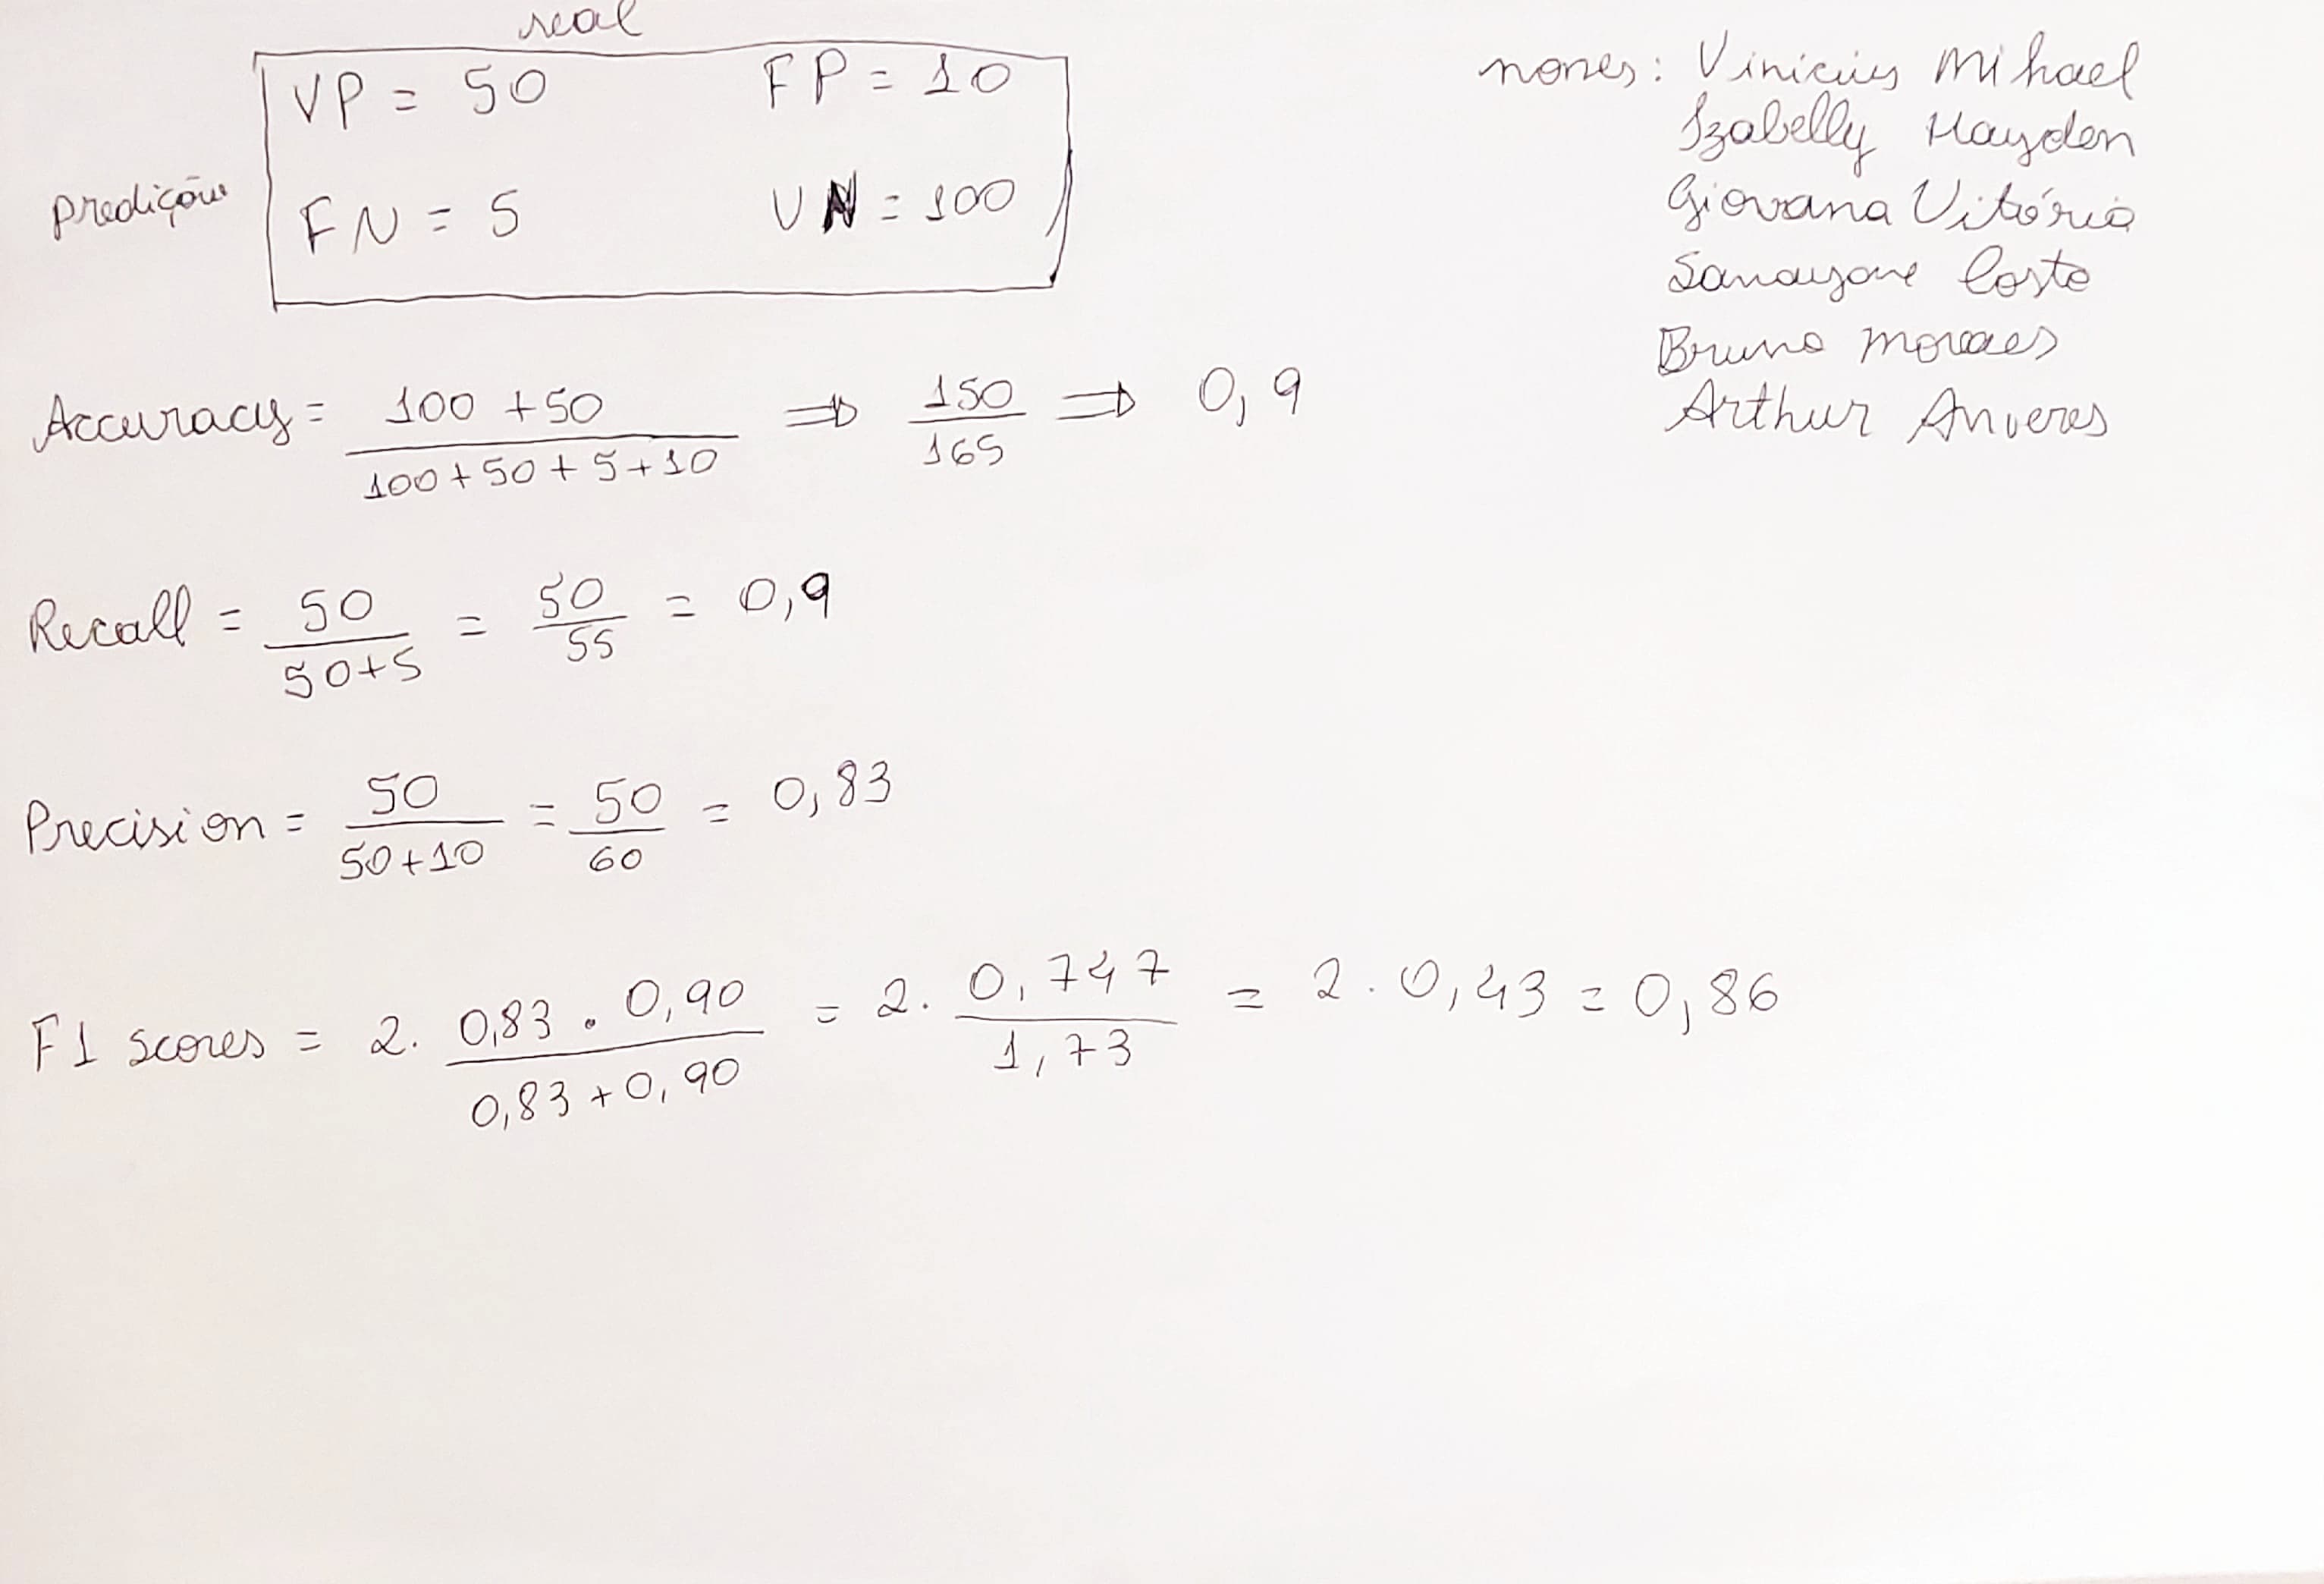 real
VP = 50 FP = 10
predição
FN = 5 VN = 100
nomes: Vinicius Mihael
Izabelly Hayden
Giovana Vitória
Costa
Bruno Moraes
Arthur Anveres
Accuracy = 100 + 50 / 100 + 50 + 5 + 10 ⇒ 150 / 165 ⇒ 0,9
Recall = 50 / 50+5 = 50 / 55 = 0,9
Precision = 50 / 50+10 = 50 / 60 = 0,83
F1 scores = 2. 0,83 . 0,90 / 0,83 + 0,90 = 2. 0,747 / 1,73 = 2 . 0,43 = 0,86